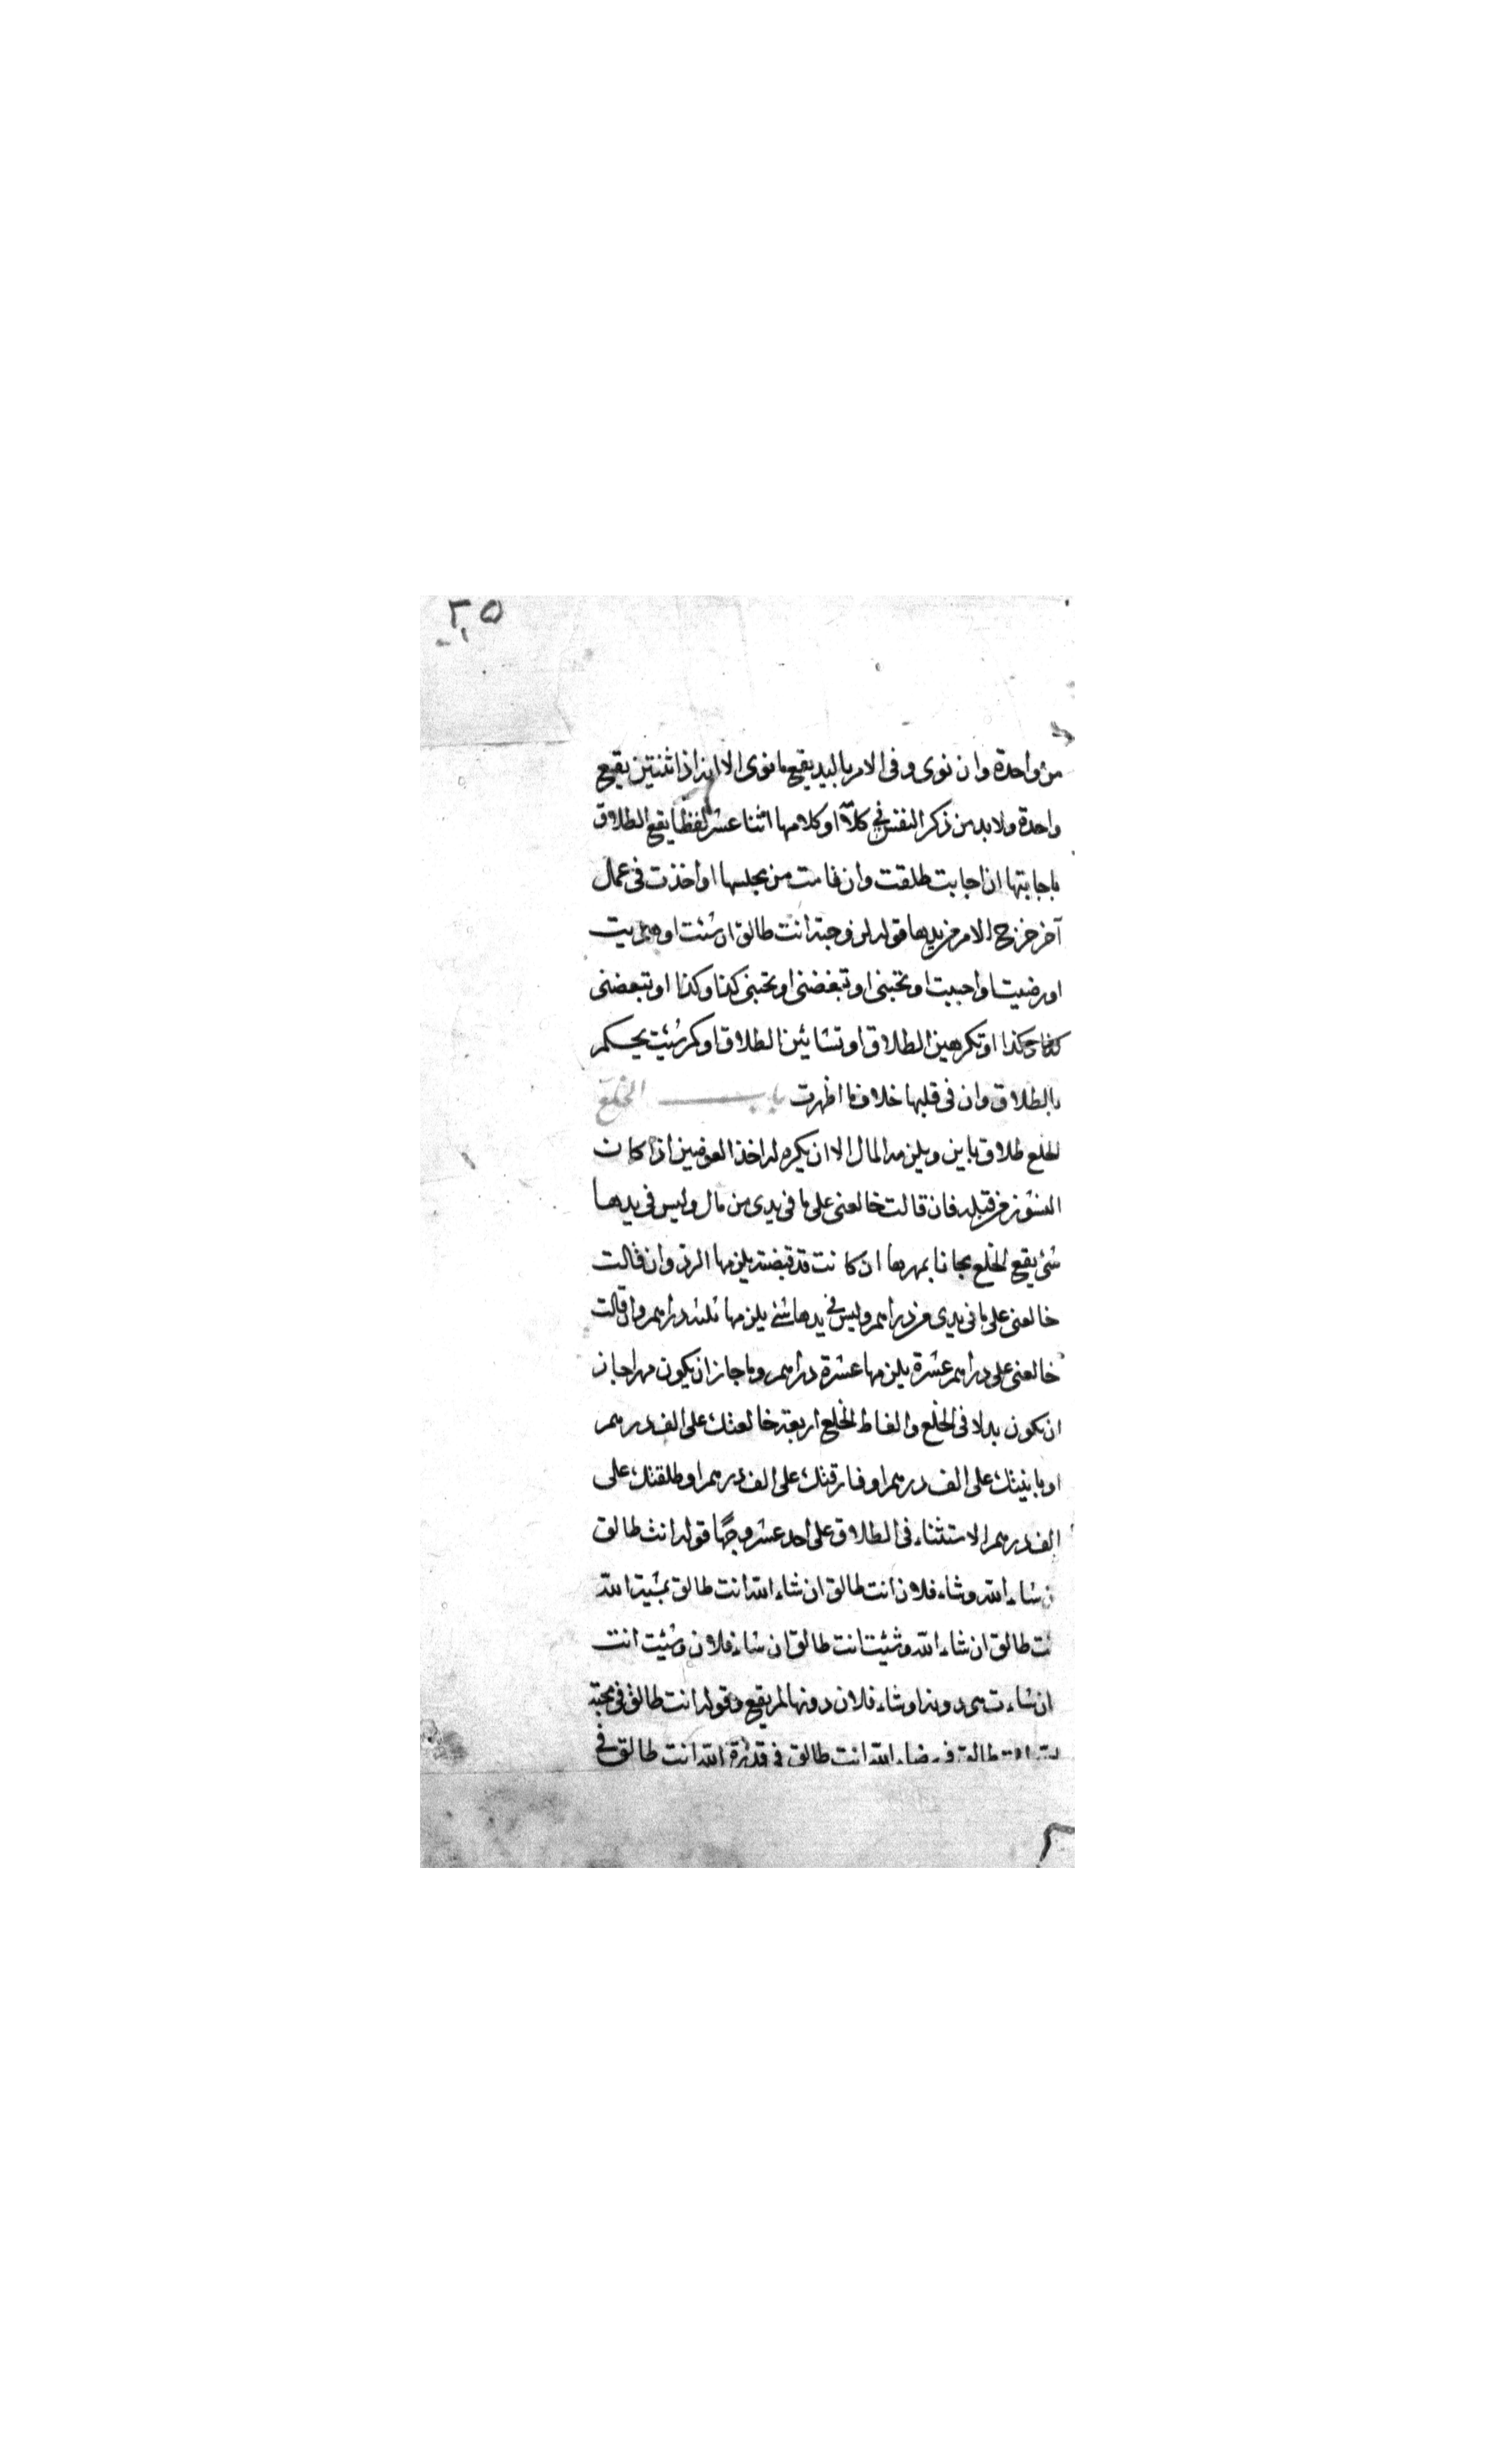 ٣٥
من واحدة وان نوى وفى الامر باليد يقع ما نوى الا انه اذا ثنتين يقع
واحدة ولا بد من ذكر النفس فى كلامه او كلامها اثنا عشر لفظا يقع الطلاق
باجابتها ان اجابت طلقت وان قامت من مجلسها او اخذت فى عمل
آخر خرج الامر من يدها قوله لزوجته انت طالق ان شئت او هويت
او رضيت او احببت او تحبنى او تبغضنى او تحبنى كذا وكذا او تبغضنى
كذا وكذا او تكرهين الطلاق او تشائين الطلاق او كم شئت يحكم
بالطلاق وان فى قلبها خلاف ما اظهرت باب الخلع
الخلع طلاق باين ويلزمه المال الا ان يكره له اخذ العوضين اذا كان
النشوز من قبله فان قالت خالعنى على ما فى يدى من مال وليس فى يدها
شئ يقع الخلع مجانا بمهرها ان كانت قد قبضته يلزمها الرد وان قالت
خالعنى على ما فى يدى من دراهم وليس فى يدها شئ يلزمها ثلثه دراهم وان قالت
خالعنى على دراهم عشرة يلزمها عشرة دراهم وما جاز ان يكون مهرا جاز
ان يكون بدلا فى الخلع والفاظ الخلع اربعة خالعتك على الف درهم
او باينتك على الف درهم او فارقتك على الف درهم او طلقتك على
الف درهم الاستثناء فى الطلاق على احد عشر وجها قوله انت طالق
ان شاء الله وشاء فلان انت طالق ان شاء الله انت طالق بمشية الله
انت طالق ان شاء الله وشئت انت طالق ان شاء فلان وشئت انت
ان شاءت هى دونه او شاء فلان دونها لم يقع وقوله انت طالق فى محبة
الله انت طالق فى رضاء الله انت طالق فى قدرة الله انت طالق فى